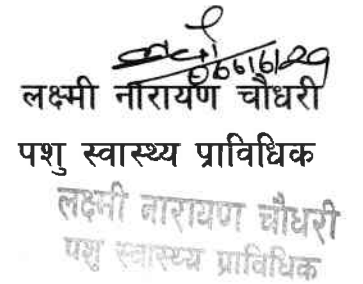 लक्ष्मी नारायण चौधरी
पशु स्वास्थ्य प्राविधिक
लक्ष्मी नारायण चौधरी
पशु स्वास्थ्य प्राविधिक